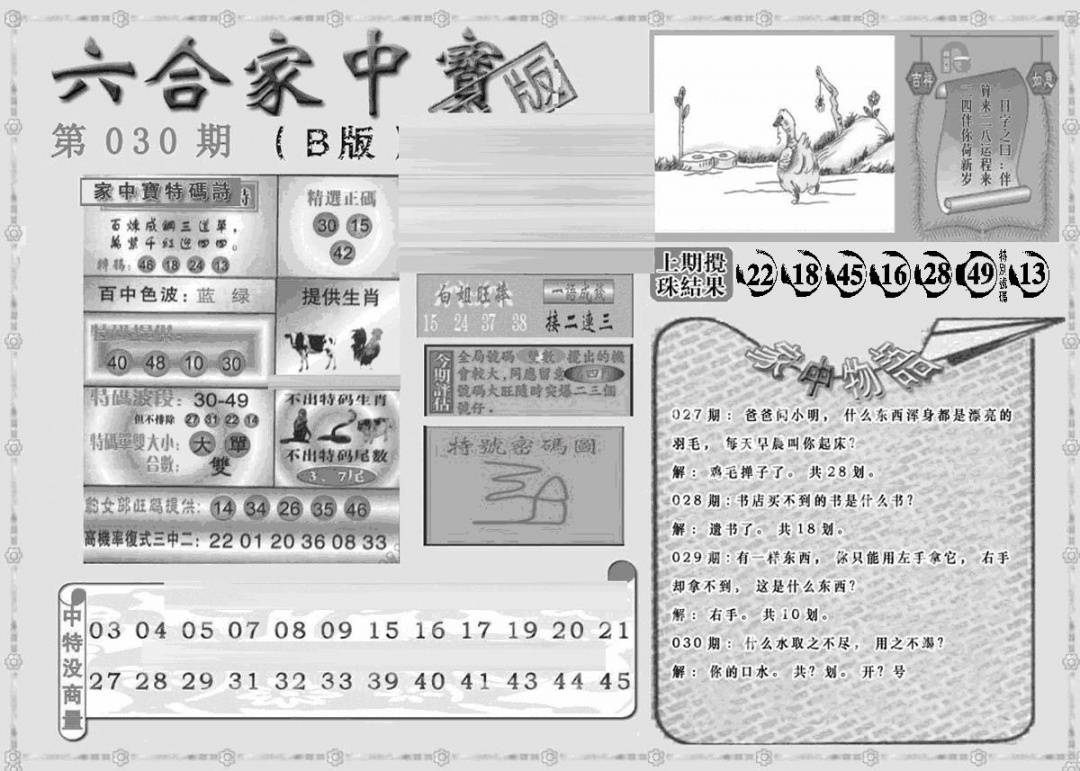 六合家中寶
版
第 030 期 （B版）
家中寶特碼詩
百煉成鋼三道單，
萬紫千紅迎四四。
46 18 24 13
精選正碼
30 15
42
百中色波：蓝 绿
提供生肖
特碼提供：
40 48 10 30
特碼波段：30-49
但不排除 27 31 22 14
特碼單雙大小：大 單
合數：雙
不出特码生肖
不出特码尾數
3、7尾
豹女郎旺碼提供：14 34 26 35 46
高機率復式三中二：22 01 20 36 08 33
白姐旺捧
15 24 37 38
一語成籤
接二連三
今期評估
全局號碼 雙數 攪出的機
會較大，同應留意 四
號碼大旺隨時突爆二三個
號仔．
特號密碼圖
吉祥
如意
一日字之曰：伴
算来二八运程来
一四伴你荷新岁
上期攪
珠結果
22 18 45 16 28 49
特別號碼
13
家中物語
027期：爸爸问小明，什么东西浑身都是漂亮的
羽毛，每天早晨叫你起床？
解：鸡毛掸子了。共28划。
028期：书店买不到的书是什么书？
解：遗书了。共18划。
029期：有一样东西，你只能用左手拿它，右手
却拿不到，这是什么东西？
解：右手。共10划。
030期：什么水取之不尽，用之不竭？
解：你的口水。共？划。开？号
中特没商量
03 04 05 07 08 09 15 16 17 19 20 21
27 28 29 31 32 33 39 40 41 43 44 45